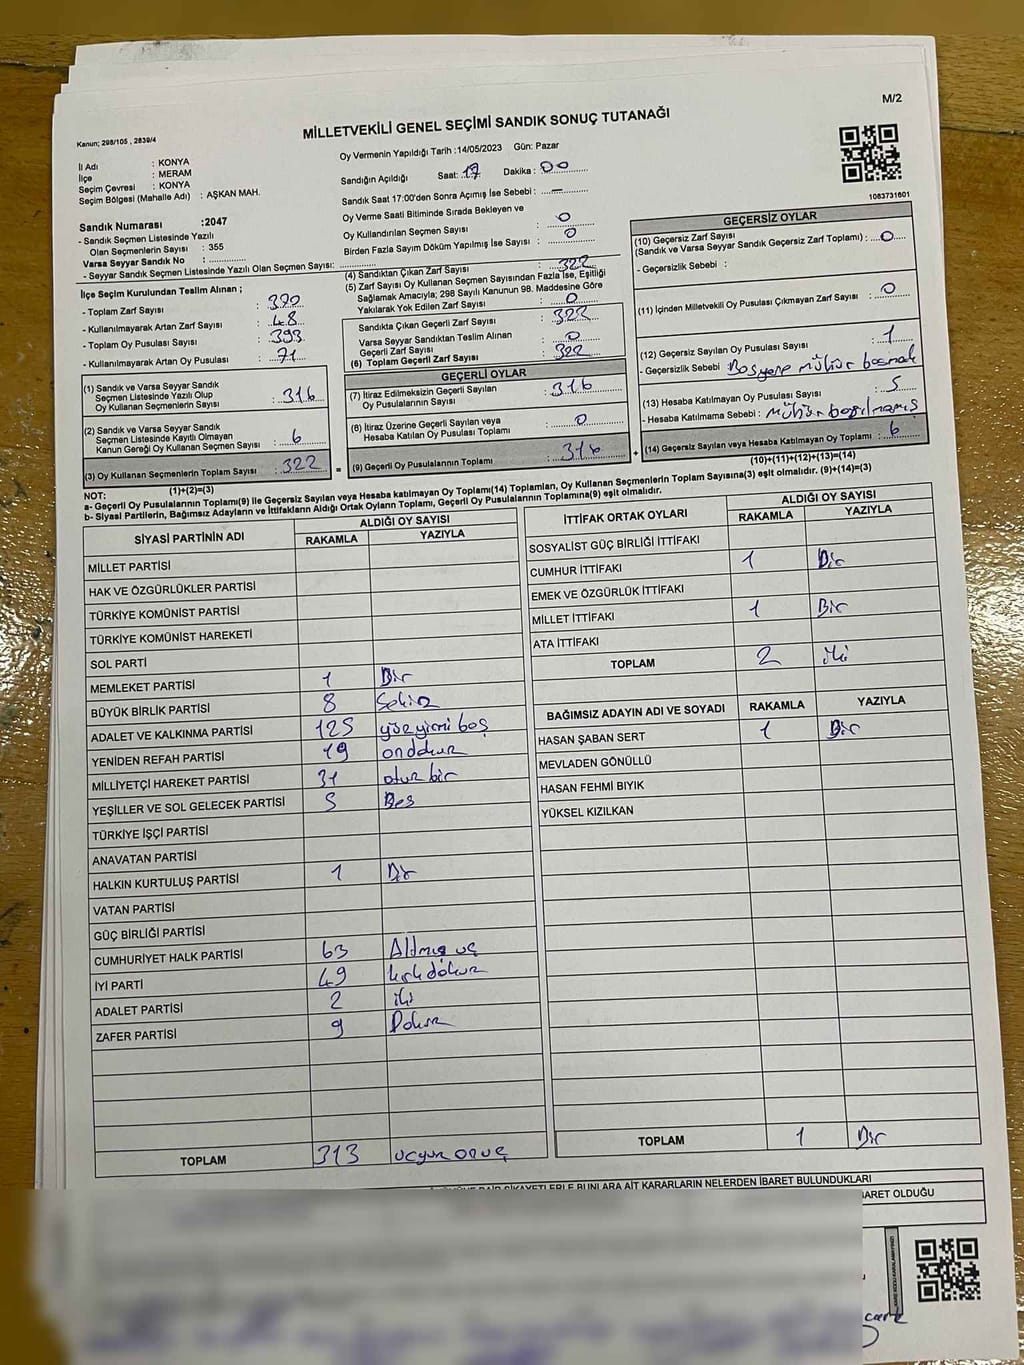 M/2
MİLLETVEKİLİ GENEL SEÇİMİ SANDIK SONUÇ TUTANAĞI
Kanun; 298/105 , 2839/4
İl Adı : KONYA
İlçe : MERAM
Seçim Çevresi : KONYA
Seçim Bölgesi (Mahalle Adı) : AŞKAN MAH.
Sandık Numarası :2047
- Sandık Seçmen Listesinde Yazılı
Olan Seçmenlerin Sayısı : 355
Varsa Seyyar Sandık No : ............
- Seyyar Sandık Seçmen Listesinde Yazılı Olan Seçmen Sayısı: ............
Oy Vermenin Yapıldığı Tarih :14/05/2023 Gün: Pazar
Sandığın Açıldığı Saat: 17 Dakika : 00
Sandık Saat 17:00'den Sonra Açımış İse Sebebi : —
Oy Verme Saati Bitiminde Sırada Bekleyen ve
Oy Kullandırılan Seçmen Sayısı : 0
Birden Fazla Sayım Döküm Yapılmış İse Sayısı : 0
1083731601
İlçe Seçim Kurulundan Teslim Alınan ;
- Toplam Zarf Sayısı : 370
- Kullanılmayarak Artan Zarf Sayısı : 48
- Toplam Oy Pusulası Sayısı : 393
- Kullanılmayarak Artan Oy Pusulası : 71
(1) Sandık ve Varsa Seyyar Sandık
Seçmen Listesinde Yazılı Olup
Oy Kullanan Seçmenlerin Sayısı : 316
(2) Sandık ve Varsa Seyyar Sandık
Seçmen Listesinde Kayıtlı Olmayan
Kanun Gereği Oy Kullanan Seçmen Sayısı : 6
(3) Oy Kullanan Seçmenlerin Toplam Sayısı : 322
(1)+(2)=(3)
(4) Sandıktan Çıkan Zarf Sayısı : 322
(5) Zarf Sayısı Oy Kullanan Seçmen Sayısından Fazla İse, Eşitliği
Sağlamak Amacıyla; 298 Sayılı Kanunun 98. Maddesine Göre
Yakılarak Yok Edilen Zarf Sayısı : 0
Sandıkta Çıkan Geçerli Zarf Sayısı : 322
Varsa Seyyar Sandıktan Teslim Alınan
Geçerli Zarf Sayısı : 0
(6) Toplam Geçerli Zarf Sayısı : 322
GEÇERLİ OYLAR
(7) İtiraz Edilmeksizin Geçerli Sayılan
Oy Pusulalarının Sayısı : 316
(8) İtiraz Üzerine Geçerli Sayılan veya
Hesaba Katılan Oy Pusulası Toplamı : 0
= (9) Geçerli Oy Pusulalarının Toplamı : 316 +
GEÇERSİZ OYLAR
(10) Geçersiz Zarf Sayısı
(Sandık ve Varsa Seyyar Sandık Geçersiz Zarf Toplamı) : 0
- Geçersizlik Sebebi :
(11) İçinden Milletvekili Oy Pusulası Çıkmayan Zarf Sayısı : 0
(12) Geçersiz Sayılan Oy Pusulası Sayısı : 1
- Geçersizlik Sebebi Boşyere mühür basmak
(13) Hesaba Katılmayan Oy Pusulası Sayısı : 5
- Hesaba Katılmama Sebebi : mühür basılmamış
(14) Geçersiz Sayılan veya Hesaba Katılmayan Oy Toplamı : 6
(10)+(11)+(12)+(13)=(14)
NOT:
a- Geçerli Oy Pusulalarının Toplamı(9) ile Geçersiz Sayılan veya Hesaba katılmayan Oy Toplamı(14) Toplamları, Oy Kullanan Seçmenlerin Toplam Sayısına(3) eşit olmalıdır. (9)+(14)=(3)
b- Siyasi Partilerin, Bağımsız Adayların ve İttifakların Aldığı Ortak Oyların Toplamı, Geçerli Oy Pusulalarının Toplamına(9) eşit olmalıdır.
SİYASİ PARTİNİN ADI ALDIĞI OY SAYISI
RAKAMLA YAZIYLA
MİLLET PARTİSİ
HAK VE ÖZGÜRLÜKLER PARTİSİ
TÜRKİYE KOMÜNİST PARTİSİ
TÜRKİYE KOMÜNİST HAREKETİ
SOL PARTİ
MEMLEKET PARTİSİ 1 Bir
BÜYÜK BİRLİK PARTİSİ 8 Sekiz
ADALET VE KALKINMA PARTİSİ 125 yüz yirmi beş
YENİDEN REFAH PARTİSİ 19 ondokuz
MİLLİYETÇİ HAREKET PARTİSİ 31 otuz bir
YEŞİLLER VE SOL GELECEK PARTİSİ 5 Beş
TÜRKİYE İŞÇİ PARTİSİ
ANAVATAN PARTİSİ
HALKIN KURTULUŞ PARTİSİ 1 Bir
VATAN PARTİSİ
GÜÇ BİRLİĞİ PARTİSİ
CUMHURİYET HALK PARTİSİ 63 Altmış üç
İYİ PARTİ 49 kırk dokuz
ADALET PARTİSİ 2 iki
ZAFER PARTİSİ 9 Dokuz
TOPLAM 313 üçyüz onüç
İTTİFAK ORTAK OYLARI ALDIĞI OY SAYISI
RAKAMLA YAZIYLA
SOSYALİST GÜÇ BİRLİĞİ İTTİFAKI
CUMHUR İTTİFAKI 1 Bir
EMEK VE ÖZGÜRLÜK İTTİFAKI
MİLLET İTTİFAKI 1 Bir
ATA İTTİFAKI
TOPLAM 2 iki
BAĞIMSIZ ADAYIN ADI VE SOYADI RAKAMLA YAZIYLA
HASAN ŞABAN SERT 1 Bir
MEVLADEN GÖNÜLLÜ
HASAN FEHMİ BIYIK
YÜKSEL KIZILKAN
TOPLAM 1 Bir
ŞİKAYETLERLE BUNLARA AİT KARARLARIN NELERDEN İBARET BULUNDUKLARI
BARET OLDUĞU